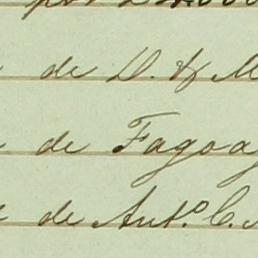 de D. & M
de Fagoa
de Ant.º C.